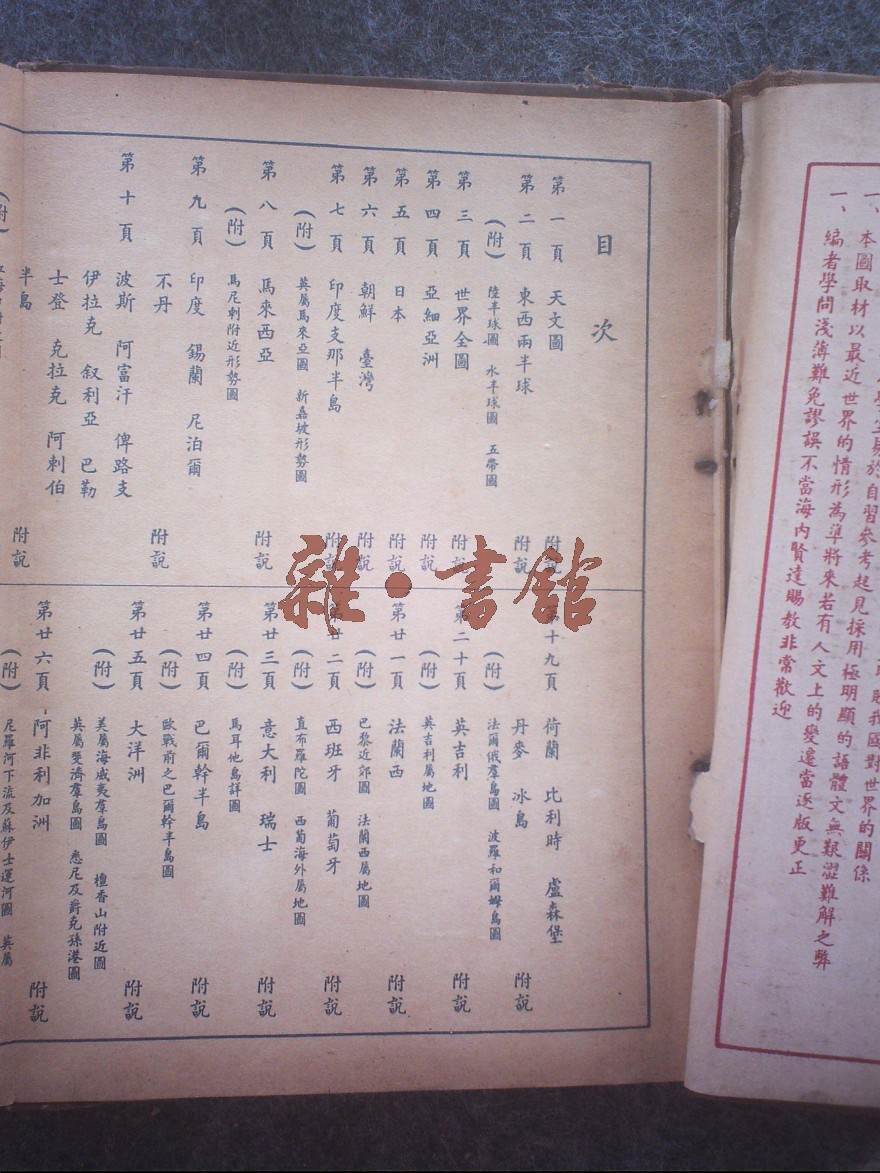 一、本圖取材以最近世界的情形為準將來若有人文上的變遷當逐版更正
一、編者學問淺薄難免謬誤不當海内賢達賜教非常歡迎
自習參考起見採用極明顯的語體文無艱澀難解之弊
我國對世界的關係
目次
第一頁 天文圖 附説
第二頁 東西兩半球 附説
(附) 陸半球圖 水半球圖 五帶圖
第三頁 世界全圖 附説
第四頁 亞細亞洲 附説
第五頁 日本 附説
第六頁 朝鮮 臺灣 附説
第七頁 印度支那半島 附説
(附) 英屬馬來亞圖 新嘉坡形勢圖
第八頁 馬來西亞 附説
(附) 馬尼剌附近形勢圖
第九頁 印度 錫蘭 尼泊爾
不丹 附説
第十頁 波斯 阿富汗 俾路支
伊拉克 叙利亞 巴勒
士登 克拉克 阿剌伯
半島 附説
(附)
第十九頁 荷蘭 比利時 盧森堡
丹麥 冰島 附説
(附) 法爾俄羣島圖 波羅和爾姆島圖
第二十頁 英吉利 附説
(附) 英吉利屬地圖
第廿一頁 法蘭西 附説
(附) 巴黎近郊圖 法蘭西屬地圖
第廿二頁 西班牙 葡萄牙 附説
(附) 直布羅陀圖 西葡海外屬地圖
第廿三頁 意大利 瑞士 附説
(附) 馬耳他島詳圖
第廿四頁 巴爾幹半島 附説
(附) 歐戰前之巴爾幹半島圖
第廿五頁 大洋洲 附説
(附) 美屬海威夷羣島圖 檀香山附近圖
英屬斐濟羣島圖 悉尼及爵克孫港圖
第廿六頁 阿非利加洲 附説
(附) 尼羅河下流及蘇伊士運河圖 英屬
雜·書館